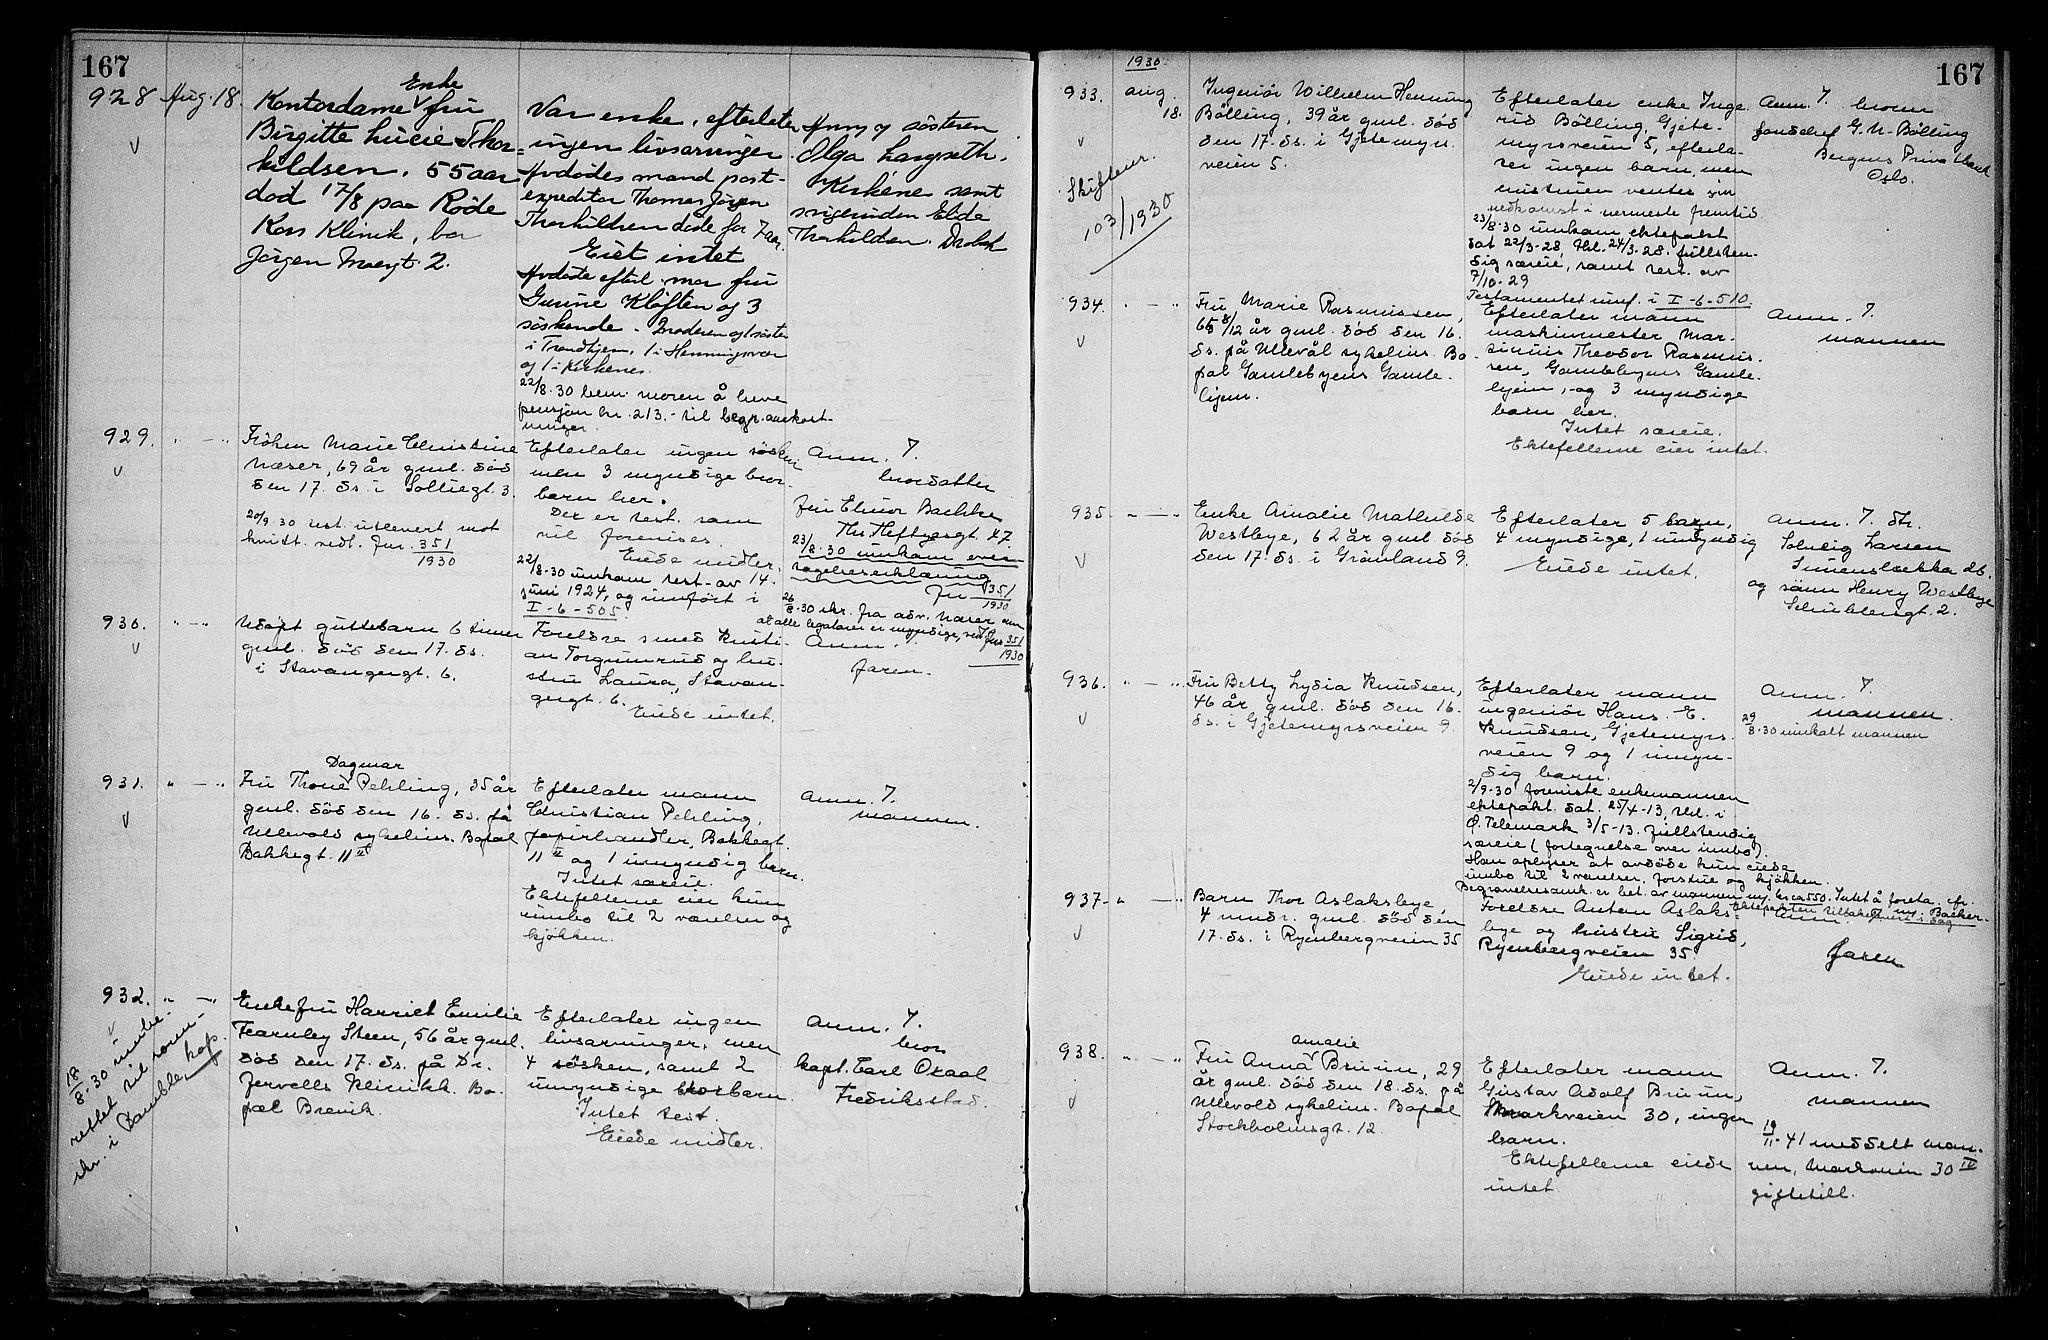 167
928 Aug. 18.
Enke
Kontordame fru
Birgitte Lucie Thor-
kildsen, 55 aar
död 17/8 paa Röde
Kors Klinik, bor
Jörgen Moegt. 2.
Var enke, efterlater
ingen livsarvinger.
Avdödes mand post-
expeditör Thomas Jörgen
Thorkildsen döde for 7 aar.
Eiet intet
Avdöde efterl. mor fru
Gurine Kløften og 3
söskende - Broderen og 1 söster
i Trondhjem, 1 i Henningsvær
og 1 i Kirkenes.
22/8.30 bem. moren å heve
pensjon kr. 213.- til begr. omkost-
ninger.
Anm. av søsteren
Olga Langseth,
Kirkenes samt
svigerinden Elde
Thorkildsen. Drøbak
929. " — "
Fröken Marie Christine
Næser, 69 år gml. död
den 17. ds. i Solliegt. 3.
20/9.30 test. utlevert mot
kvitt. vedl. Jnr. 351/1930
Efterlater ingen søsken
men 3 myndige bror-
barn her.
Der er test. som
vil forevises.
Eiede midler.
22/8.30 innkom test. av 14.
juni 1924, og innført i
I - 6 - 505.
Anm. 7.
brordatter
Fru Elinor Bachke
Ths. Heftyesgt. 47
23/8.30 innkom over-
tagelseserklæring
Jnr 351/1930
26/8.30 skr. fra adv. Næser om
at alle legatarer er myndige, ved Jnr 351/1930
930. " — "
Udöpt guttebarn 6 timer
gml. död den 17. ds.
i Stavangergt. 6.
Foreldre smed Kristi-
an Torgunrud og hu-
stru Laura, Stavan-
gergt. 6.
Eiede intet.
Anm. 7.
faren.
931. " — "
Dagmar
Fru Thone Pehling, 35 år
gml. död den 16. ds. på
Ullevold sykehus. Bopæl
Bakkegt. 11 II
Efterlater mann
Christian Pehling,
papirhandler, Bakkegt.
11 II og 1 umyndig barn.
Intet særeie.
Ektefellene eier kun
innbo til 2 værelser og
kjøkken.
Anm. 7.
mannen.
932. " — "
18/8.30 innbe-
rettet til som-
skr. i Bamble,
kap.
Enkefru Harriet Emilie
Fearnley Steen, 56 år gml.
död den 17. ds. på Dr.
Jervells Klinikk. Bo-
pæl Brevik.
Efterlater ingen
livsarvinger, men
4 søsken, samt 2
umyndige brorbarn.
Intet test.
Eiede midler.
Anm. 7.
bror
kapt. Carl Ocaal
Fredrikstad.
167
1930
933. aug. 18.
Skiftenr.
103/1930
Ingeniör Wilhelm Henning
Bölling, 39 år gml. död
den 17. ds. i Gjetemyrs-
veien 5.
Efterlater enke Inge-
rid Bölling, Gjete-
myrsveien 5, efterla-
ter ingen barn, men
enstruen venter sin
nedkomst i nærmeste fremtid.
23/8.30 innkom ektepakt
dat 22/3-28, tbl. 24/3-28, fullsten-
dig særeie, samt test. av
7/10-29
Testamentet innf. i I - 6 - 510.
Anm. 7. broren
fondschef G. N. Bölling
Bergens Privatbank
Oslo.
934. " — "
Fru Marie Rasmussen,
65 8/12 år gml. död den 16.
ds. på Ullevål sykehus. Bo-
pæl Gamlebyens Gamle-
hjem.
Efterlater mann
maskinmester Mar-
tinius Theodor Rasmus-
sen, Gamlebyens Gamle-
hjem, og 3 myndige
barn her.
Intet særeie.
Ektefellene eier intet.
Anm. 7.
mannen
935. " — "
Enke Amalie Mathilde
Westbye, 62 år gml. död
den 17. ds. i Grönland 9.
Efterlater 5 barn,
4 myndige, 1 umyndig
Eiede intet.
Anm. 7. dtr.
Solveig Larsen
Simensløkka d6.
og sönn Henry Westbye
Schüblersgt. 2.
936. " — "
Fru Betty Lydia Knudsen,
46 år gml. död den 16.
ds. i Gjetemyrsveien 9.
Efterlater mann
ingeniör Hans E.
Knudsen, Gjetemyrs-
veien 9 og 1 umyn-
dig barn.
2/9-30 foreviste enkemannen
ektepakt dat. 25/4-13, tbl. i
Ö. Telemark 3/5-13. Fullstendig
særeie (fortegnelse over innbo).
Han oplyser at avdöde kun eiede
innbo til 2 værelser, forstue og kjökken.
Begravelsesomk. er bet. av mannen m. kr. ca 550. Intet å foreta. cfr.
Ektepakten tilbakelevert i dag
Anm. 7.
mannen.
29/8.30 innkalt mannen
937. " — "
Barn Thor Aslaksbye,
4 mndr. gml. död den
17. ds. i Ryenbergveien 35
Foreldre Anton Aslaks-
bye og hustru Sigrid,
Ryenbergveien 35
Eiede intet.
Anm. 7.
faren
938. " — "
Amalie
Fru Anna Bruun, 29
år gml. död den 18. ds. på
Ullevold sykehus. Bopæl
Stockholmsgt. 12.
Efterlater mann
Gustav Adolf Bruun,
Markveien 30, ingen
barn.
Ektefellene eiede
intet
Anm. 7.
mannen
19/11.41 meddelt man-
nen, Markveien 30 IV
giftetill.